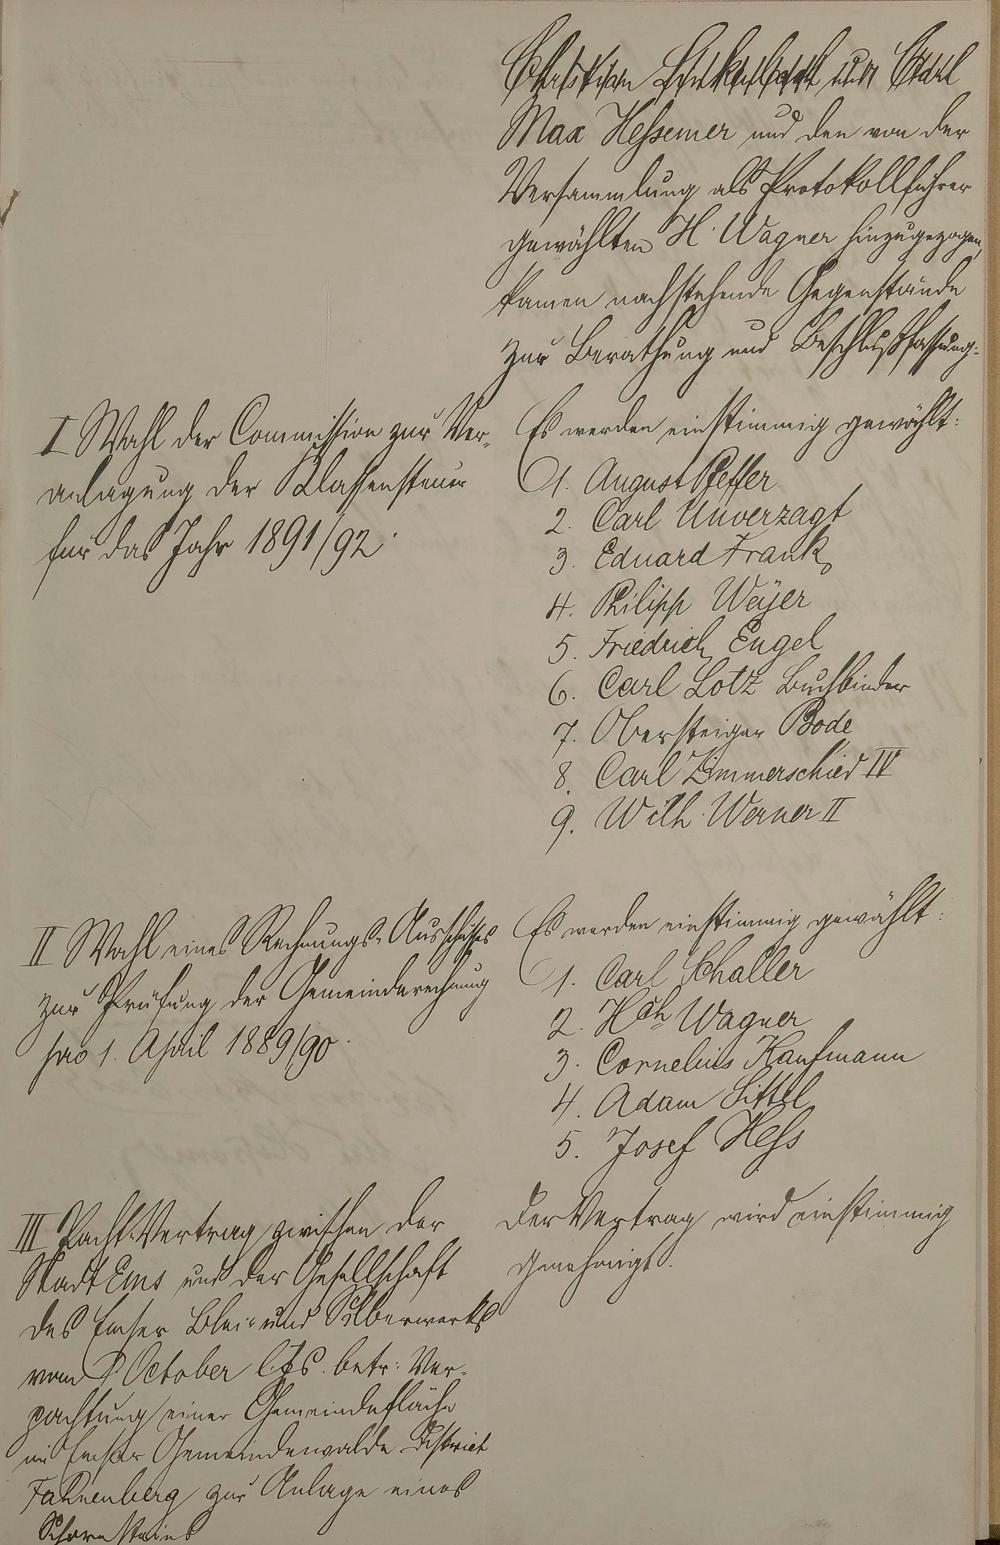 Christian Linkenbach und Carl
Max Heſsemer und den von der
Versammlung als Protokollführer
gewählten H. Wagner hinzugezogen,
kamen nachstehende Gegenstände
zur Berathung und Beschlußfassung:
I Wahl der Commission zur Ver-
anlagung der Klassensteuer
für das Jahr 1891/92.
Es werden einstimmig gewählt:
1. August Pfeffer
2. Carl Unverzagt
3. Eduard Frank
4. Philipp Weÿer
5. Friedrich Engel
6. Carl Lotz Buchbinder
7. Obersteiger Bode
8. Carl Zimmerschied IV
9. Wilh. Werner II
II Wahl eines Rechnungs-Ausschusses
zur Prüfung der Gemeinderechnung
pro 1. April 1889/90.
Es werden einstimmig gewählt:
1. Carl Schaller
2. Hch Wagner
3. Cornelius Kaufmann
4. Adam Sittel
5. Josef Heſs
III Pacht-Vertrag zwischen der
Stadt Ems und der Gesellschaft
des Emser Blei- und Silberwerks
vom October lfs. betr: Ver-
pachtung einer Gemeindefläche
im Emser Gemeindewalde District
Fahnenberg zur Anlage eines
Schornsteins
Der Vertrag wird einstimmig
genehmigt.